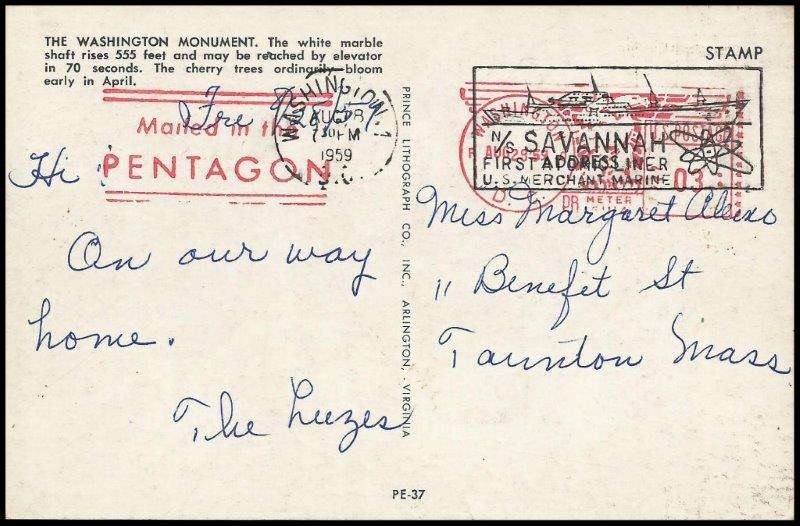 THE WASHINGTON MONUMENT. The white marble
shaft rises 555 feet and may be reached by elevator
in 70 seconds. The cherry trees ordinarily bloom
early in April.
STAMP
Fre 8/28/59
Mailed in the
PENTAGON
WASHINGTON, 1
AUG 28
7 30 PM
1959
D.C.
N/S SAVANNAH
FIRST ATOMIC LINER
U.S. MERCHANT MARINE
WASHINGTON
AUG 28 59
D.C.
ADDRESS
U.S. POSTAGE
03
PB METER
Hi!
On our way
home.
The Luzes
Miss Margaret Aleixo
11 Benefit St
Taunton Mass
PRINCE LITHOGRAPH CO., INC., ARLINGTON, VIRGINIA
PE-37